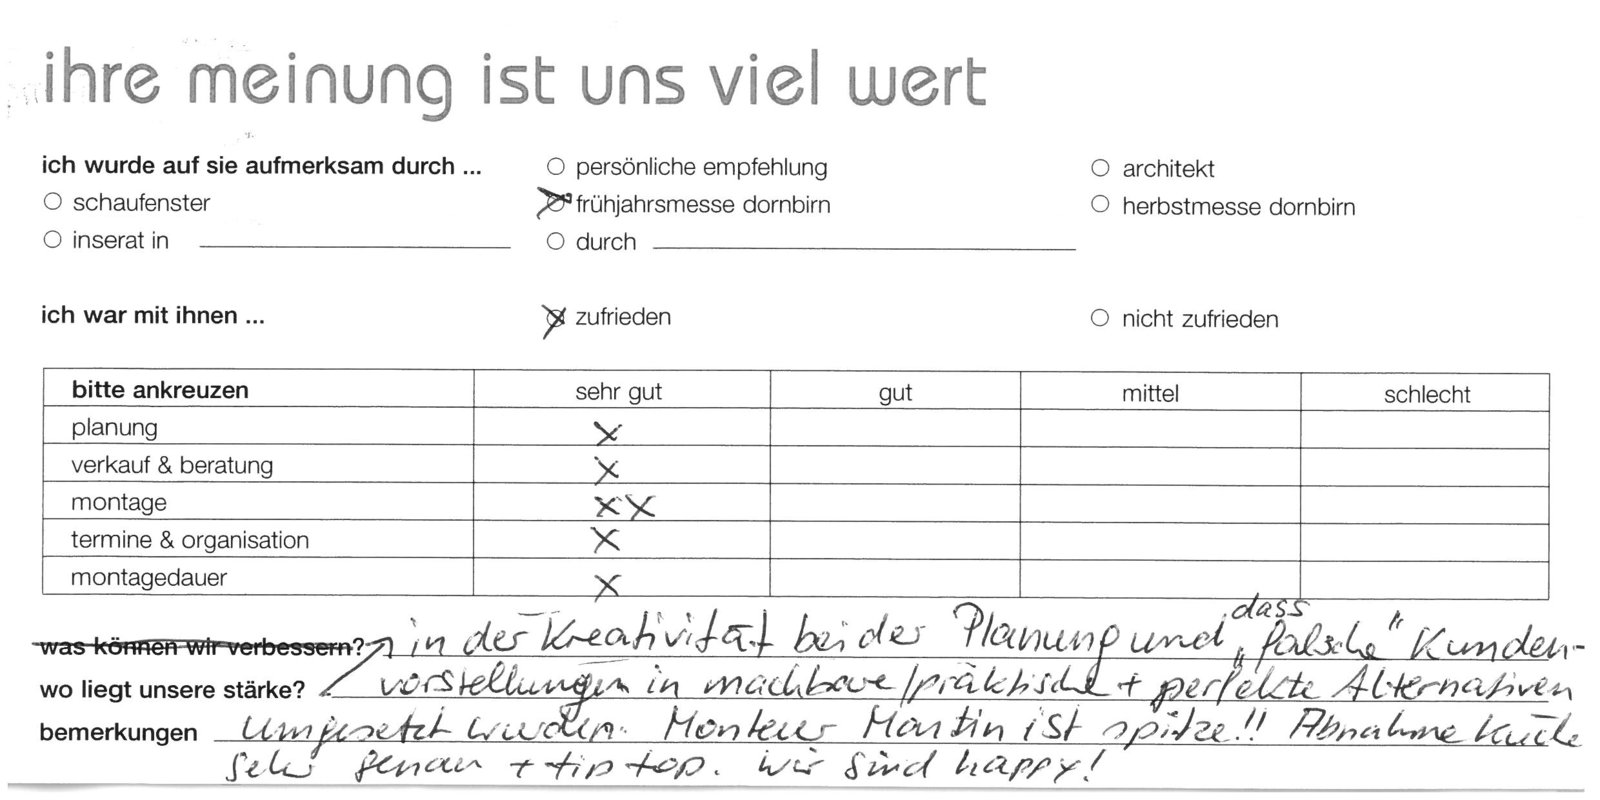 ihre meinung ist uns viel wert
ich wurde auf sie aufmerksam durch ... persönliche empfehlung architekt
schaufenster frühjahrsmesse dornbirn herbstmesse dornbirn
inserat in durch
ich war mit ihnen ... zufrieden nicht zufrieden
bitte ankreuzen sehr gut gut mittel schlecht
planung X
verkauf & beratung X
montage XX
termine & organisation X
montagedauer X
dass
was können wir verbessern? in der Kreativität bei der Planung und „falsche“ Kunden-
wo liegt unsere stärke? vorstellungen in machbare/praktische + perfekte Alternativen
bemerkungen umgesetzt wurden. Monteur Martin ist spitze!! Abnahme Küche
sehr genau + tip top. Wir sind happy!